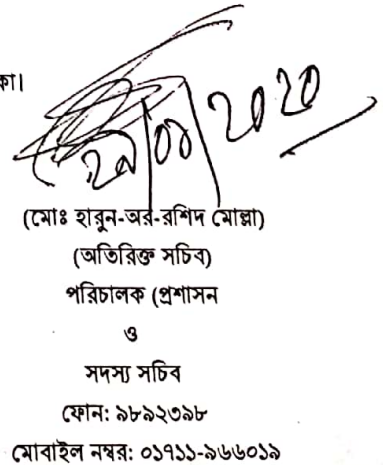 কা।
(মোঃ হারুন-অর-রশিদ মোল্লা)
(অতিরিক্ত সচিব)
পরিচালক (প্রশাসন
ও
সদস্য সচিব
ফোন: ৯৮৯২৩৯৮
মোবাইল নম্বর: ০১৭১১-৯৬৬০১৯